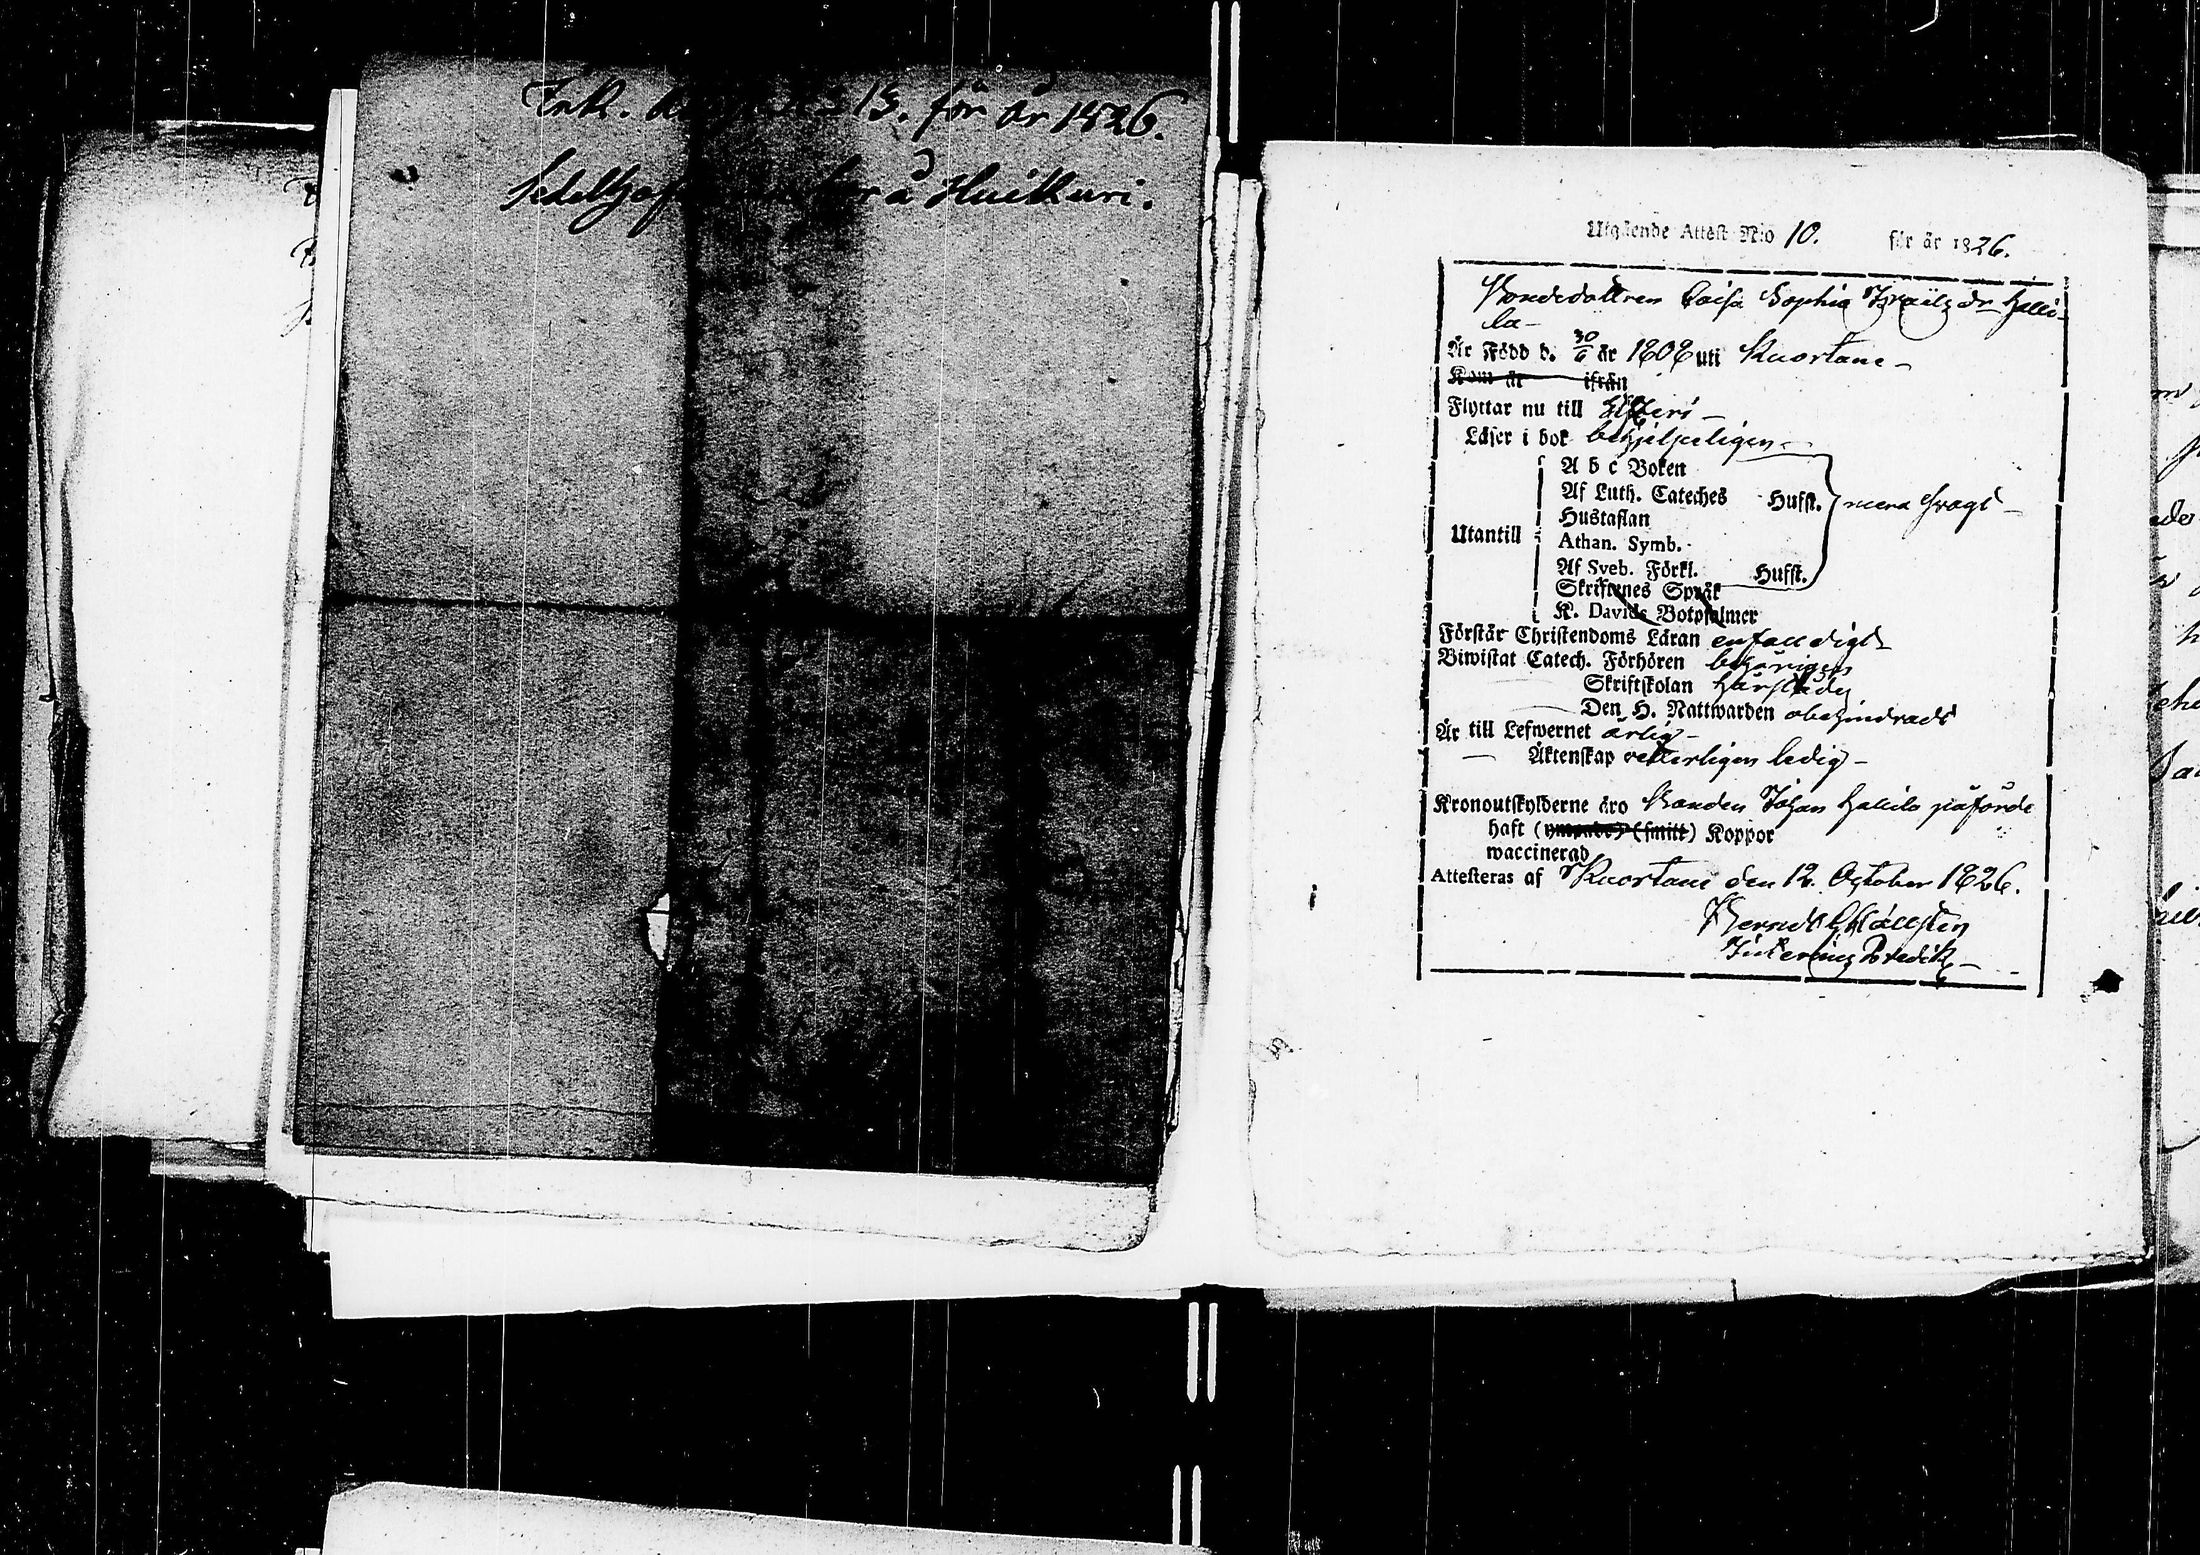 Ink. 13. för år 1826.
å Huikuri.
Utgående Attest N:o 10. för år 1826.
Bondedottren Caisa Sophia Israelsdr Halli-
la
Är Född d. 30/6 år 1808 uti Kuortane
Kom år ifrån
Flyttar nu till
Läser i bok behjelpeligen
A b c Boken
Af Luth. Cateches Hufst. mera svagt
Hustaflan
Utantill
Athan. Symb.
Af Sveb. Förkl. Hufst.
Skriftenes Språk
K. Davids Botpsalmer
Förstår Christendoms Läran enfaldigt
Biwistat Catech. Förhören behörigen
Skriftskolan härstädes
Den H. Nattwarden obehindradt
Är till Lefwernet ärlig
Äktenskap veterligen ledig
Kronoutskylderne äro Bonden Johan Hallila påförde
haft (ympade) (smitt) Koppor
waccinerad
Attesteras af Kuortane den 12. October 1826.